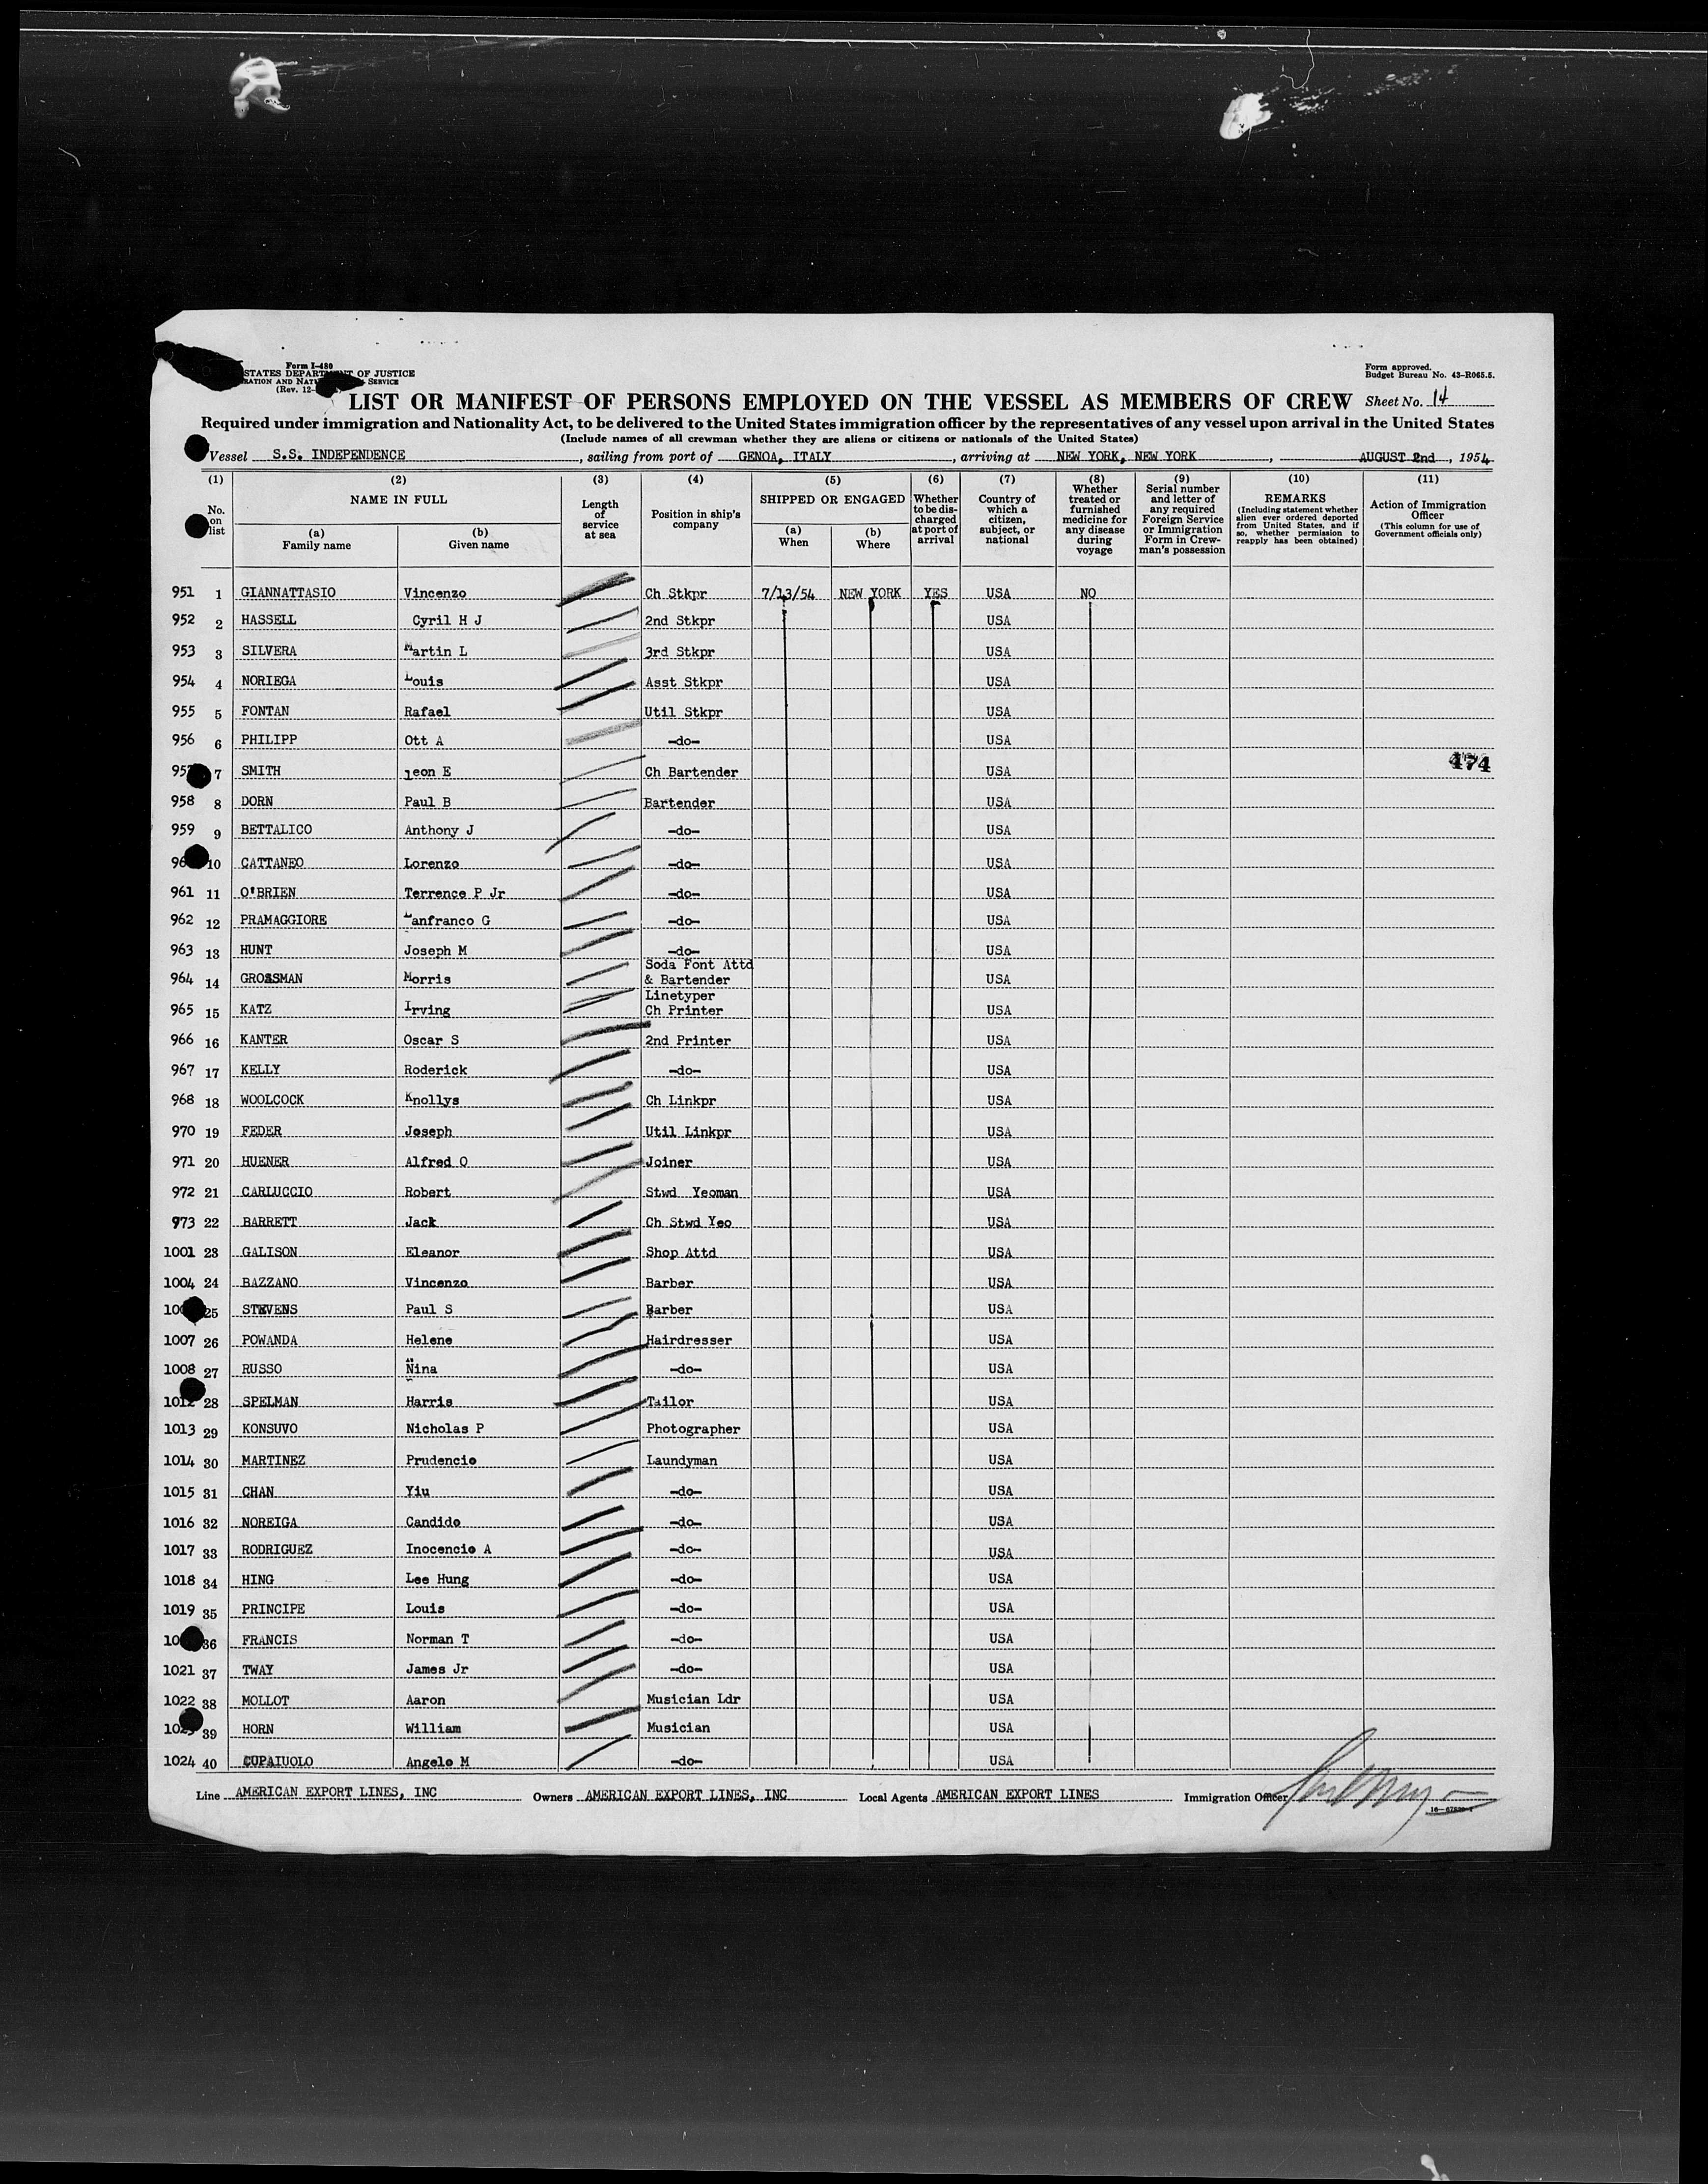 Form I-480
STATES DEPARTMENT OF JUSTICE
SERVICE
(Rev. 12-
Form approved.
Budget Bureau No. 43-R065.5.
LIST OR MANIFEST OF PERSONS EMPLOYED ON THE VESSEL AS MEMBERS OF CREW Sheet No. 14
Required under immigration and Nationality Act, to be delivered to the United States immigration officer by the representatives of any vessel upon arrival in the United States
(Include names of all crewman whether they are aliens or citizens or nationals of the United States)
Vessel S.S. INDEPENDENCE, sailing from port of GENOA, ITALY, arriving at NEW YORK, NEW YORK, AUGUST 2nd, 1954
(1) No. on list
(2) NAME IN FULL (a) Family name (b) Given name
(3) Length of service at sea
(4) Position in ship's company
(5) SHIPPED OR ENGAGED (a) When (b) Where
(6) Whether to be discharged at port of arrival
(7) Country of which a citizen, subject, or national
(8) Whether treated or furnished medicine for any disease during voyage
(9) Serial number and letter of any required Foreign Service or Immigration Form in Crew-man's possession
(10) REMARKS (Including statement whether alien ever ordered deported from United States, and if so, whether permission to reapply has been obtained)
(11) Action of Immigration Officer (This column for use of Government officials only)
951 1 GIANNATTASIO Vincenzo Ch Stkpr 7/13/54 NEW YORK YES USA NO
952 2 HASSELL Cyril H J 2nd Stkpr USA
953 3 SILVERA Martin L 3rd Stkpr USA
954 4 NORIEGA Louis Asst Stkpr USA
955 5 FONTAN Rafael Util Stkpr USA
956 6 PHILIPP Ott A -do- USA
7 SMITH leon E Ch Bartender USA 474
958 8 DORN Paul B Bartender USA
959 9 BETTALICO Anthony J -do- USA
10 CATTANEO Lorenzo -do- USA
961 11 O'BRIEN Terrence P Jr -do- USA
962 12 PRAMAGGIORE Lanfranco G -do- USA
963 13 HUNT Joseph M -do- USA
964 14 GROSSMAN Morris Soda Font Attd & Bartender USA
965 15 KATZ Irving Linetyper Ch Printer USA
966 16 KANTER Oscar S 2nd Printer USA
967 17 KELLY Roderick -do- USA
968 18 WOOLCOCK Knollys Ch Linkpr USA
970 19 FEDER Joseph Util Linkpr USA
971 20 HUENER Alfred O Joiner USA
972 21 CARLUCCIO Robert Stwd Yeoman USA
973 22 BARRETT Jack Ch Stwd Yeo USA
1001 23 GALISON Eleanor Shop Attd USA
1004 24 BAZZANO Vincenzo Barber USA
25 STEVENS Paul S Barber USA
1007 26 POWANDA Helene Hairdresser USA
1008 27 RUSSO Nina -do- USA
1012 28 SPELMAN Harris Tailor USA
1013 29 KONSUVO Nicholas P Photographer USA
1014 30 MARTINEZ Prudencio Laundyman USA
1015 31 CHAN Yiu -do- USA
1016 32 NOREIGA Candido -do- USA
1017 33 RODRIGUEZ Inocencio A -do- USA
1018 34 HING Lee Hung -do- USA
1019 35 PRINCIPE Louis -do- USA
36 FRANCIS Norman T -do- USA
1021 37 TWAY James Jr -do- USA
1022 38 MOLLOT Aaron Musician Ldr USA
39 HORN William Musician USA
1024 40 CUPAIUOLO Angelo M -do- USA
Line AMERICAN EXPORT LINES, INC Owners AMERICAN EXPORT LINES, INC Local Agents AMERICAN EXPORT LINES Immigration Officer